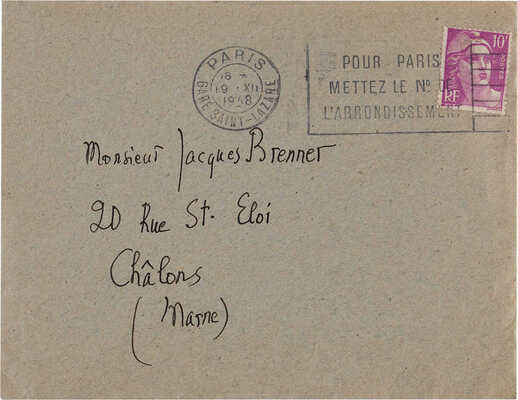 PARIS
18 H
19 · XII
1948
GARE SAINT-LAZARE
POUR PARIS
METTEZ LE N° DE
L'ARRONDISSEMENT
10F
POSTES
RF
Monsieur Jacques Brenner
20 Rue St. Eloi
Châlons
(Marne)